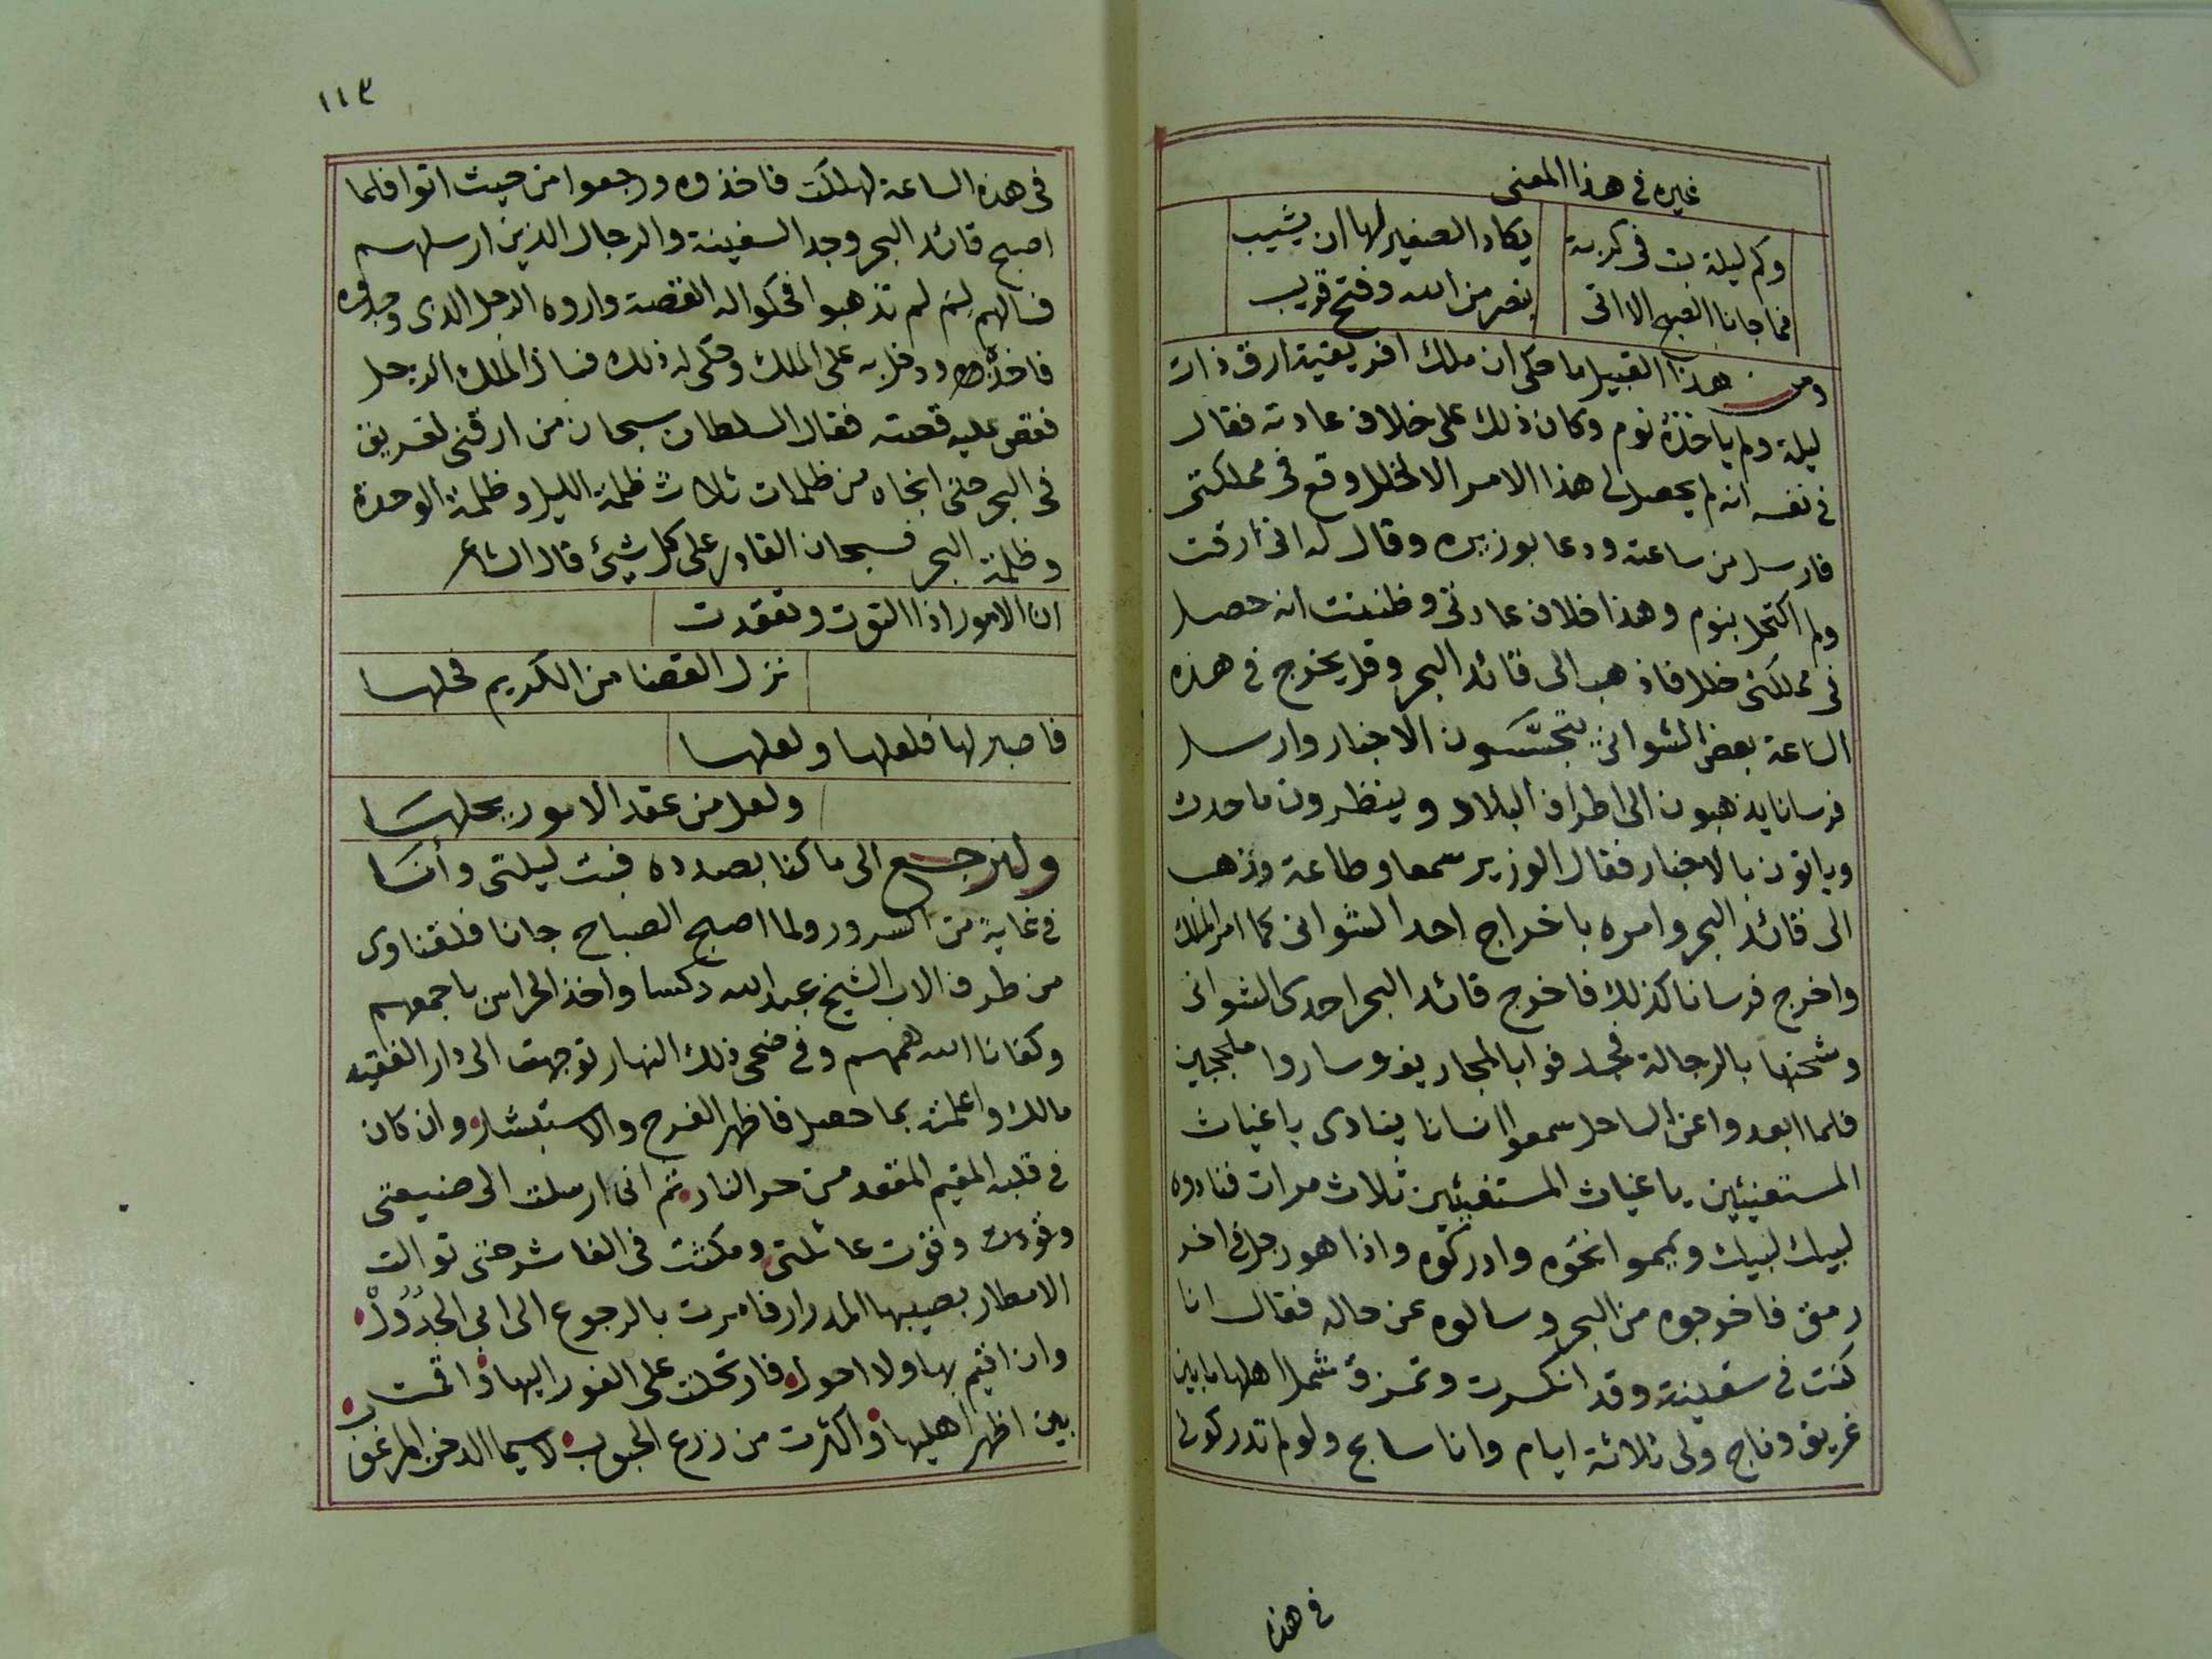 غيره فى هذا المعنى
وكم ليلة بت فى كربة يكاد الصغير لها ان يشيب
فما جانا الصبح الا اتى بنصر من الله وفتح قريب
ومن هذا القبيل ما حكى ان ملك افريقية ارق ذات
ليلة ولم ياخذه نوم وكان ذلك على خلاف عادته فقال
فى نفسه انه لم يحصل لى هذا الامر الا لخلل وقع فى مملكتى
فارسل من ساعته ودعا بوزيره وقال له انى ارقت
ولم اكتحل بنوم وهذا خلاف عادتى وظننت انه حصل
فى مملكتى خللا فاذهب الى قائد البحر وقل يخرج فى هذه
الساعة بعض الشوانى يتجسسون الاخبار وارسل
فرسانا يذهبون الى اطراف البلاد وينظرون ما حدث
وياتون بالاخبار فقال الوزير سمعا وطاعة وذهب
الى قائد البحر وامره باخراج احد الشوانى كما امر الملك
واخرج فرسانا كذلك فاخرج قائد البحر احدى الشوانى
وشحنها بالرجالة فجدفوا بالمجاريف وساروا ملججين
فلما ابعدوا عن الساحل سمعوا انسانا ينادى يا غياث
المستغيثين يا غياث المستغيثين ثلاث مرات فنادوه
لبيك لبيك ويمموا نحوه وادركوه واذا هو رجل فى اخر
رمق فاخرجوه من البحر وسالوه عن حاله فقال انا
كنت فى سفينة وقد انكسرت وتمزق شمل اهلها ما بين
غريق وناج ولى ثلاثة ايام وانا سابح ولو لم تدركونى
فى هذه
١١٣
فى هذه الساعة لهلكت فاخذوه ورجعوا من حيث اتوا فلما
اصبح قائد البحر وجد السفينة والرجال الذين ارسلهم
فسالهم لِمَ لم تذهبوا فحكوا له القصة واروه الرجل الذى وجدوه
فاخذه ودخل به على الملك وحكى له ذلك فسال الملك الرجل
فقص عليه قصته فقال السلطان سبحان من ارقنى لغريق
فى البحر حتى انجاه من ظلمات ثلاث ظلمة الليل وظلمة الوحدة
وظلمة البحر فسبحان القادر على كل شيئ قال الشاعر
ان الامور اذا التوت وتعقدت
نزل القضا من الكريم فحلها
فاصبر لها فلعلها ولعلها
ولعل من عقد الامور يحلها
ولنرجع الى ما كنا بصدده فبت ليلتى وأنا
فى غاية من السرور ولما اصبح الصباح جانا فلقناوى
من طرف الاب الشيخ عبد الله دكسا واخذ الحراس باجمعهم
وكفانا الله همهم وفى ضحى ذلك النهار توجهت الى دار الفقيه
مالك واعلمته بما حصل فاظهر الفرح والاستبشار وان كان
فى قلبه المقيم المقعد من حر النار ثم انى ارسلت الى ضيعتى
وعائلتى ومكثت فى الفاشر حتى توالت
الامطار بصيبها المدرار فامرت بالرجوع الى ابى الجدول
وان اقيم بها ولا احول فارتحلت على الفور اليها واقمت
بين اظهر اهليها واكثرت من زرع الحبوب لاسيما الدخن المرغوب